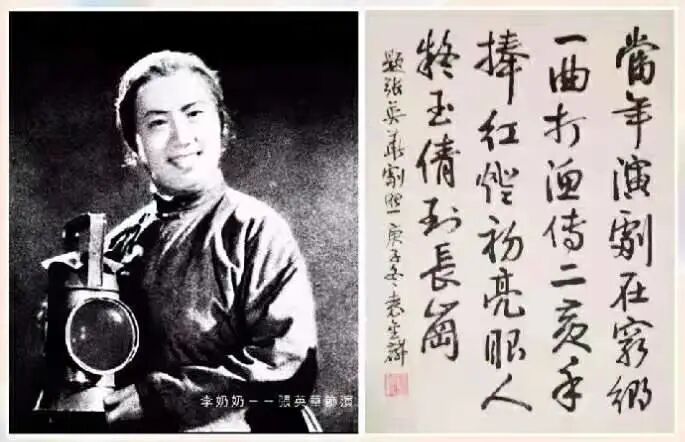 李奶奶——張英華飾演
當年演劇在窮鄉
一曲打漁傳二黃手
捧紅燈初亮眼人
凝玉倩到長崗
題張英華劇照 庚子冬 袁